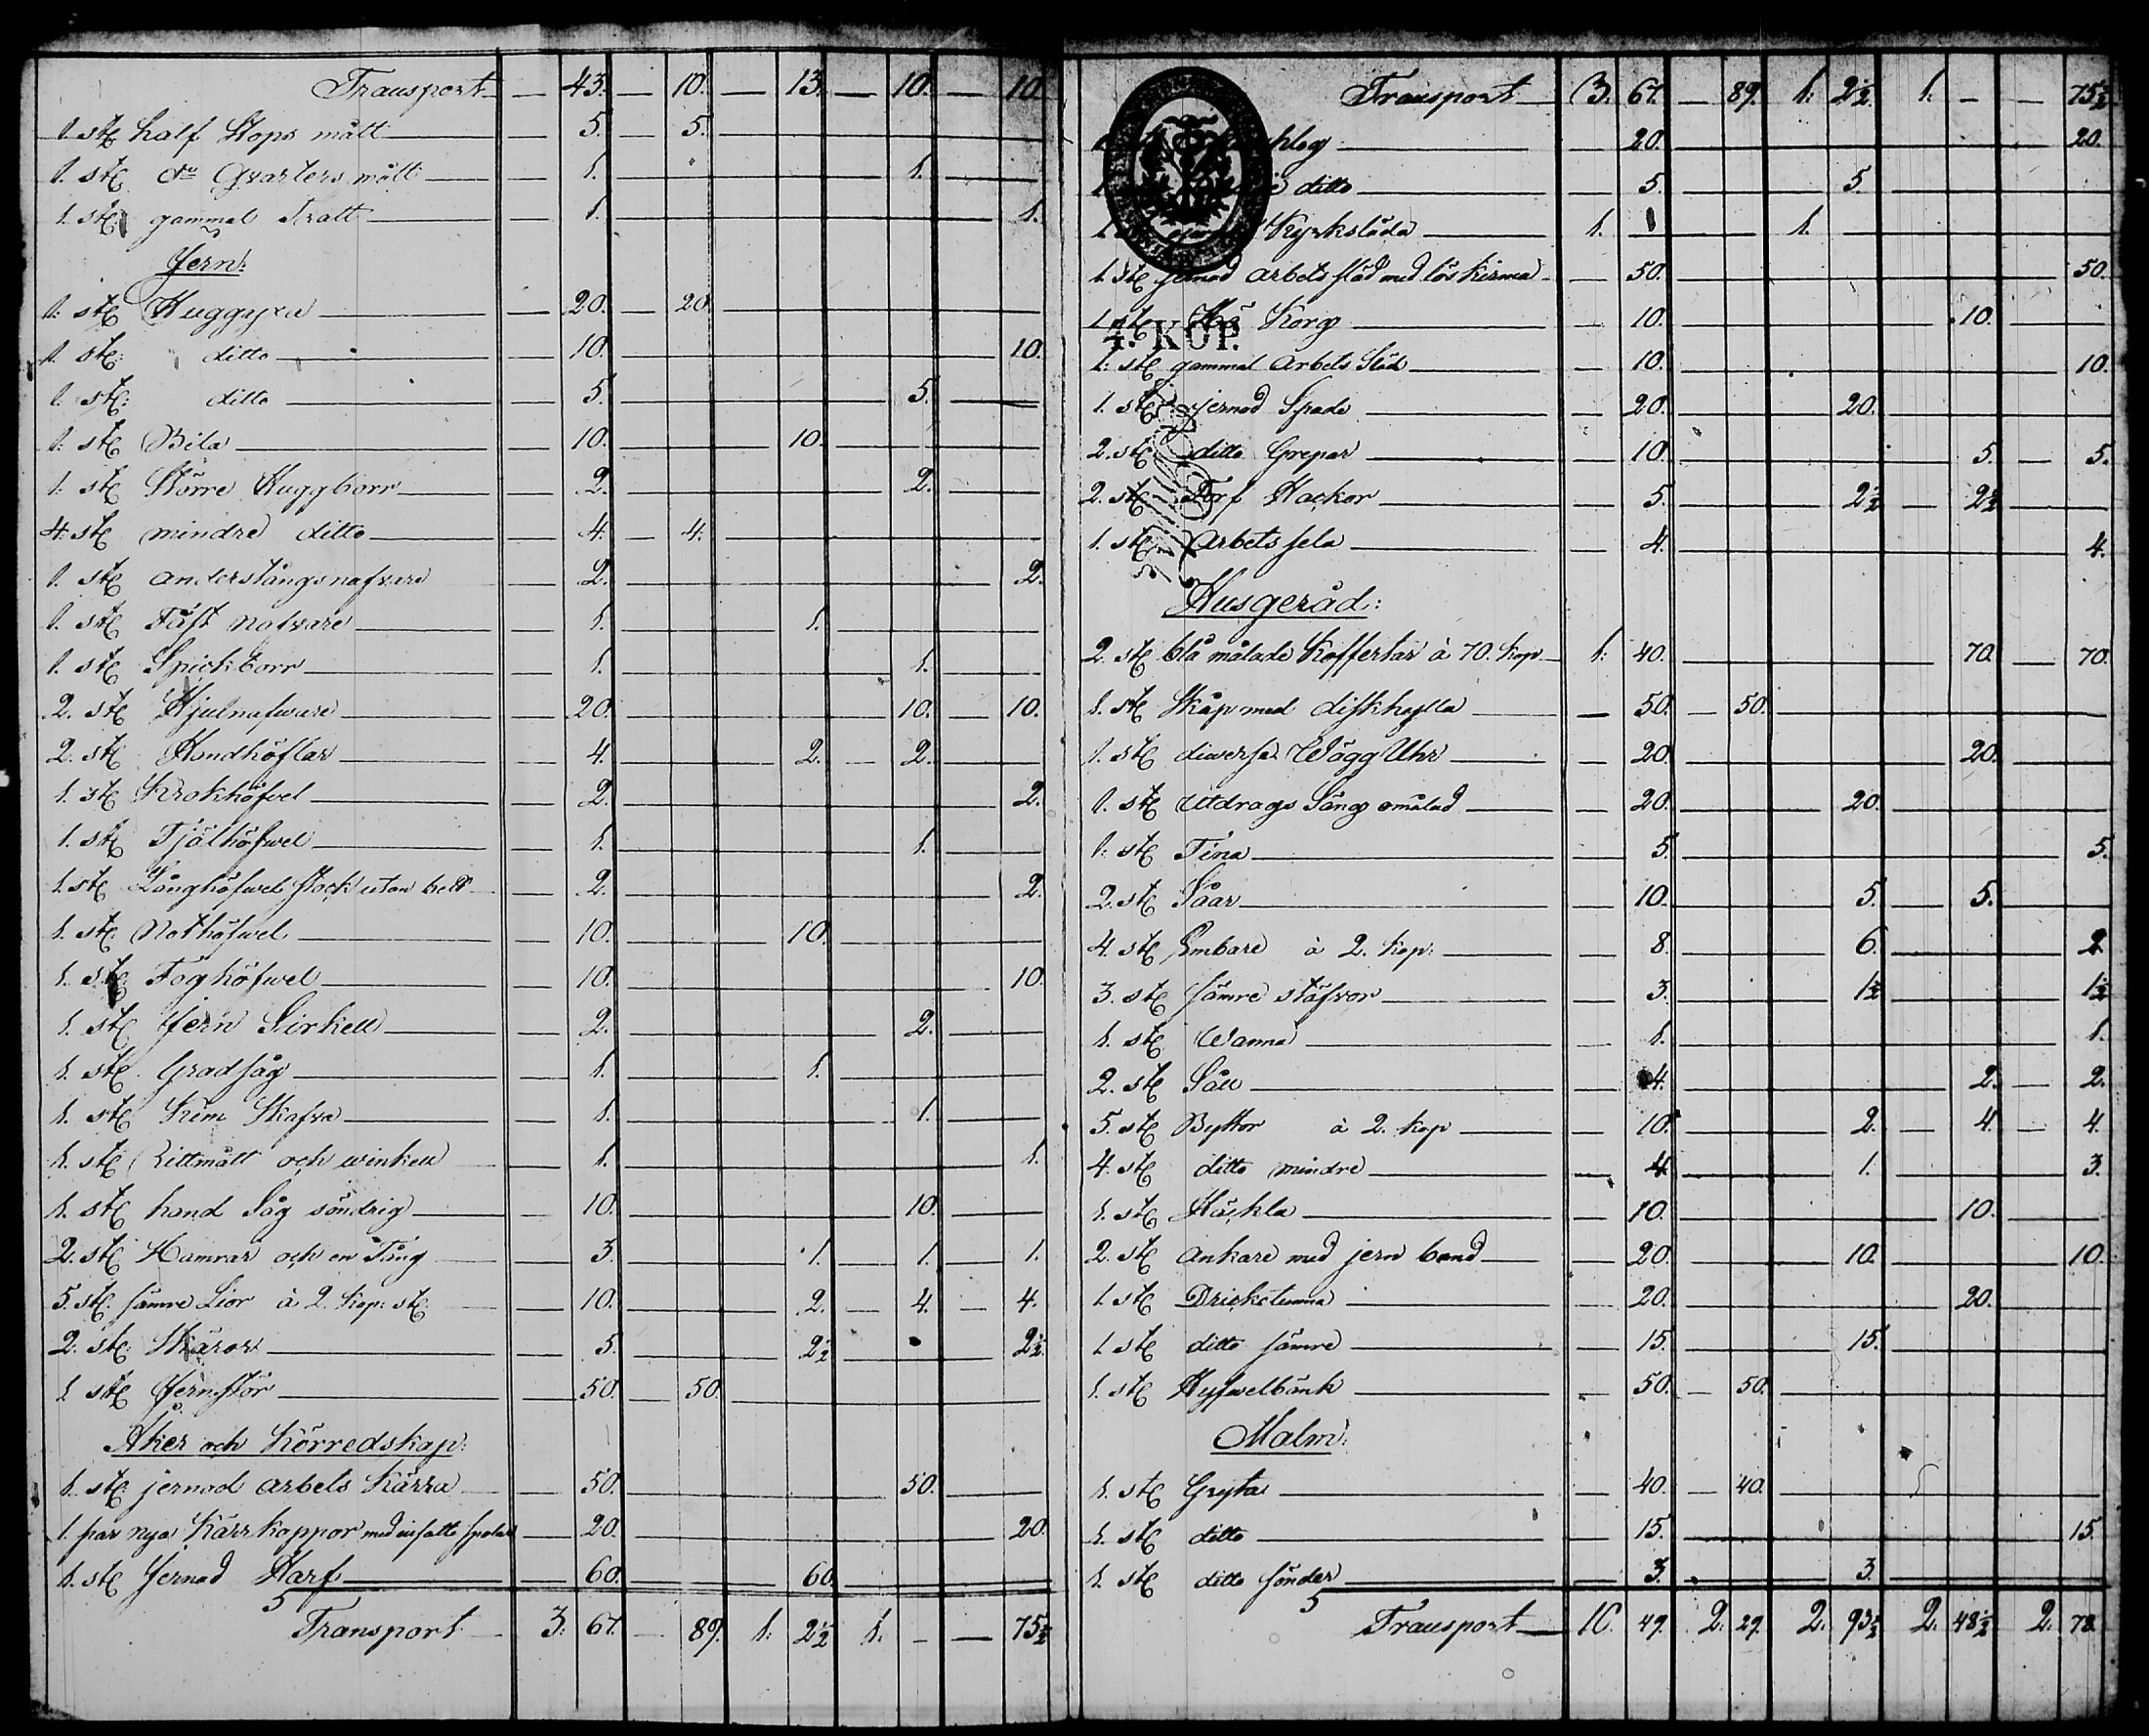 Transport — 43. — 10. — 13. — 10. — 10.
1. st. half Stops mått — 5. — 5.
1. st. do Qvarters mått — 1. — 1.
1. st. gammal Tratt — 1. — 1.
Jern:
1. st. Huggyxa — 20. — 20.
1. st. ditto — 10. — 10.
1. st. ditto — 5. — 5.
1. st. Bila — 10. — 10.
1. st. Större Huggborr — 2. — 2.
4. st. mindre ditto — 4. — 4.
1. st. anderstångs nafvare — 2. — 2.
1. st. Fäst nafvare — 1. — 1.
1. st. Spickborr — 1. — 1.
2. st. Hjulnafware — 20. — 10. — 10.
2. st. Handhöflar — 4. — 2. — 2.
1. st. Krokhöfvel — 2. — 2.
1. st. Tjälhöfwel — 1. — 1.
1. st. Långhöfwel stock utan bett — 2. — 2.
1. st. Nothöfwel — 10. — 10.
1. st. Foghöfwel — 10. — 10.
1. st. Jern Sirkell — 2. — 2.
1. st. Gradsåg — 1. — 1.
1. st. Kim Skafva — 1. — 1.
1. st. Rittmått och winkell — 1. — 1.
1. st. hand Såg söndrig — 10. — 10.
2. st. Hamrar och en Tång — 3. — 1. — 1. — 1.
5. st. sämre Lior à 2. kop: st. — 10. — 2. — 4. — 4.
2. st. Skäror — 5. — 2½ — 2½.
1. st. Jernstör — 50. — 50.
Åker och Körredskap:
1. st. jernad arbets Kärra — 50. — 50.
1. par nya Kärrkappor med insatte spolar — 20. — 20.
1. st. Jernad Harf — 60. — 60.
Transport — 3. 67. — 89. 1. 2½ 1. — — 75½
Transport — 3. 67. — 89. 1. 2½ 1. — — 75½
20. — 20.
ditto — 5. — 5.
1. Kyrksläda — 1. — 1.
1. st. jernad arbets släd med lös kirma — 50. — 50.
1. st. Hö Korg — 10. — 10.
4. KOP.
1. st. gammal arbets Släd — 10. — 10.
1. st. jernad Spade — 20. — 20.
2. st. ditto Grepar — 10. — 5. — 5.
2. st. Torf Hackor — 5. — 2½ — 2½
1. st. Arbets sela — 4. — 4.
Husgeråd:
2. st. blå målade Koffertar à 70. kop — 1. 40. — 70. — 70.
1. st. Skåp med diskhylla — 50. — 50.
1. st. diverse Wägg Uhr — 20. — 20.
1. st. Utdrags Säng omålad — 20. — 20.
1. st. Tina — 5. — 5.
2. st. Såar — 10. — 5. — 5.
4. st. Embare à 2. kop: — 8. — 6. — 2.
3. st. sämre stäfvor — 3. — 1½ — 1½
1. st. Wanna — 1. — 1.
2. st. Såll — 4. — 2. — 2.
5. st. Byttor à 2. kop — 10. — 2. — 4. — 4.
4. st. ditto mindre — 4. — 1. — 3.
1. st. Häckla — 10. — 10.
2. st. ankare med jern band — 20. — 10. — 10.
1. st. Drickstunna — 20. — 20.
1. st. ditto sämre — 15. — 15.
1. st. Hyfwelbänk — 50. — 50.
Malm:
1. st. Gryta — 40. — 40.
1. st. ditto — 15. — 15.
1. st. ditto sönder — 3. — 3.
Transport — 10. 49. 2. 29. 2. 93½ 2. 48½ 2. 78